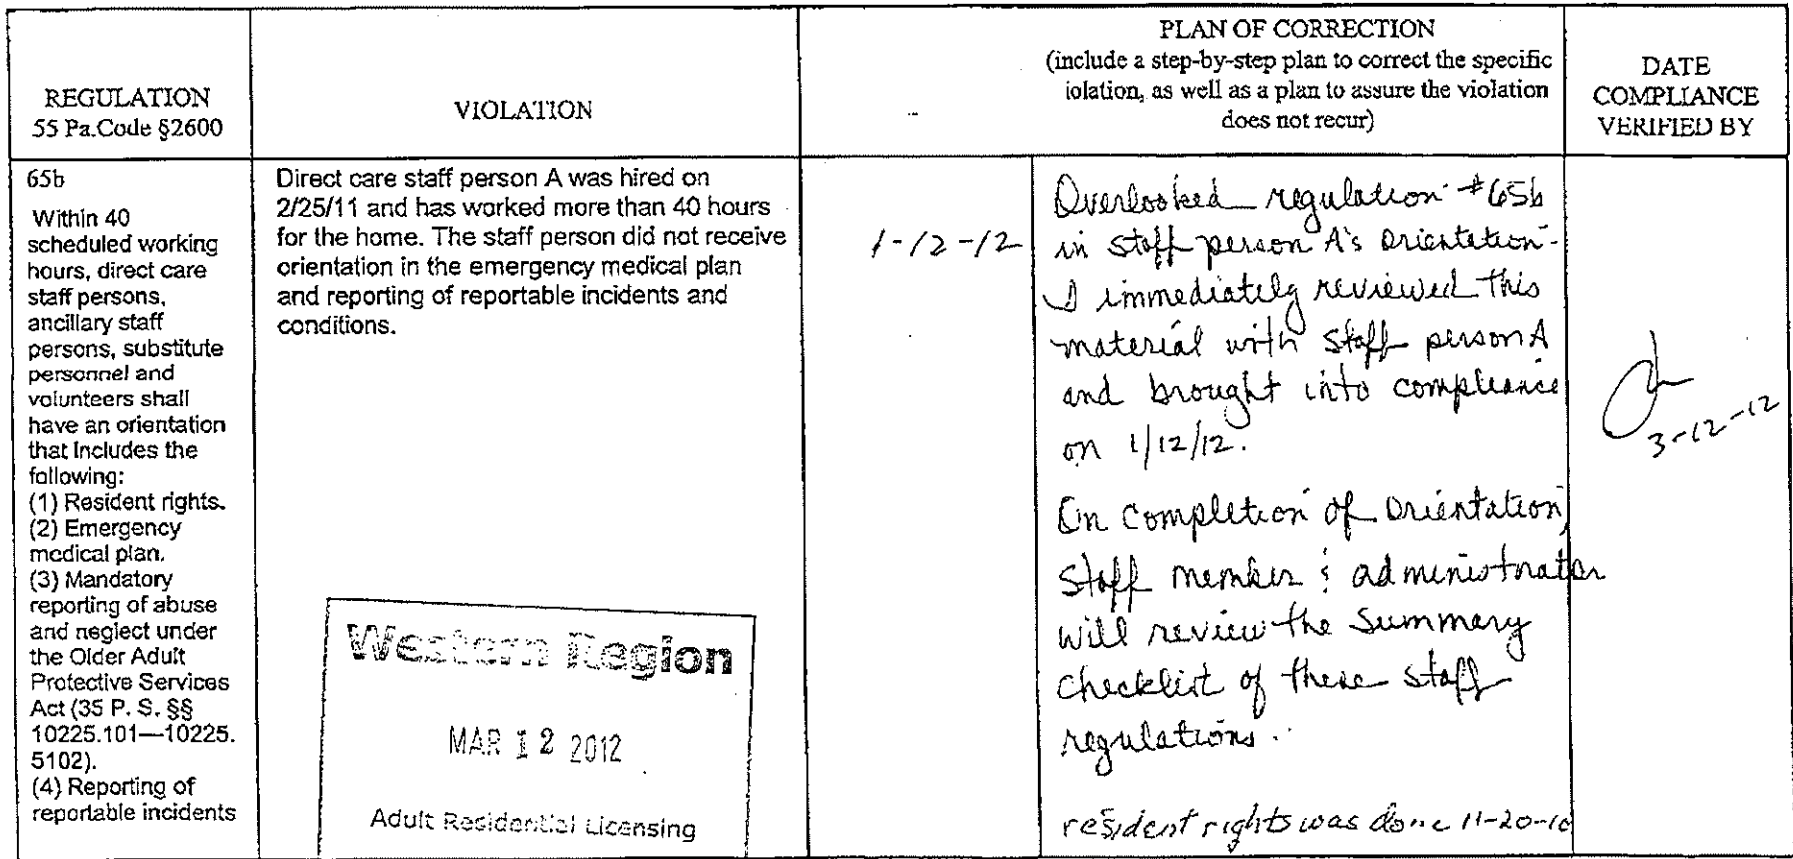 REGULATION
55 Pa.Code §2600
VIOLATION
PLAN OF CORRECTION
(include a step-by-step plan to correct the specific
iolation, as well as a plan to assure the violation
does not recur)
DATE
COMPLIANCE
VERIFIED BY
65b
Within 40
scheduled working
hours, direct care
staff persons,
ancillary staff
persons, substitute
personnel and
volunteers shall
have an orientation
that includes the
following:
(1) Resident rights.
(2) Emergency
medical plan.
(3) Mandatory
reporting of abuse
and neglect under
the Older Adult
Protective Services
Act (35 P. S. §§
10225.101—10225.
5102).
(4) Reporting of
reportable incidents
Direct care staff person A was hired on
2/25/11 and has worked more than 40 hours
for the home. The staff person did not receive
orientation in the emergency medical plan
and reporting of reportable incidents and
conditions.
Western Region
MAR 12 2012
Adult Residential Licensing
1-12-12
Overlooked regulation #65b
in staff person A's orientation.
I immediately reviewed this
material with staff person A
and brought into compliance
on 1/12/12.
On completion of Orientation,
staff member & administrator
will review the summary
checklist of these staff
regulations.
resident rights was done 11-20-10
3-12-12